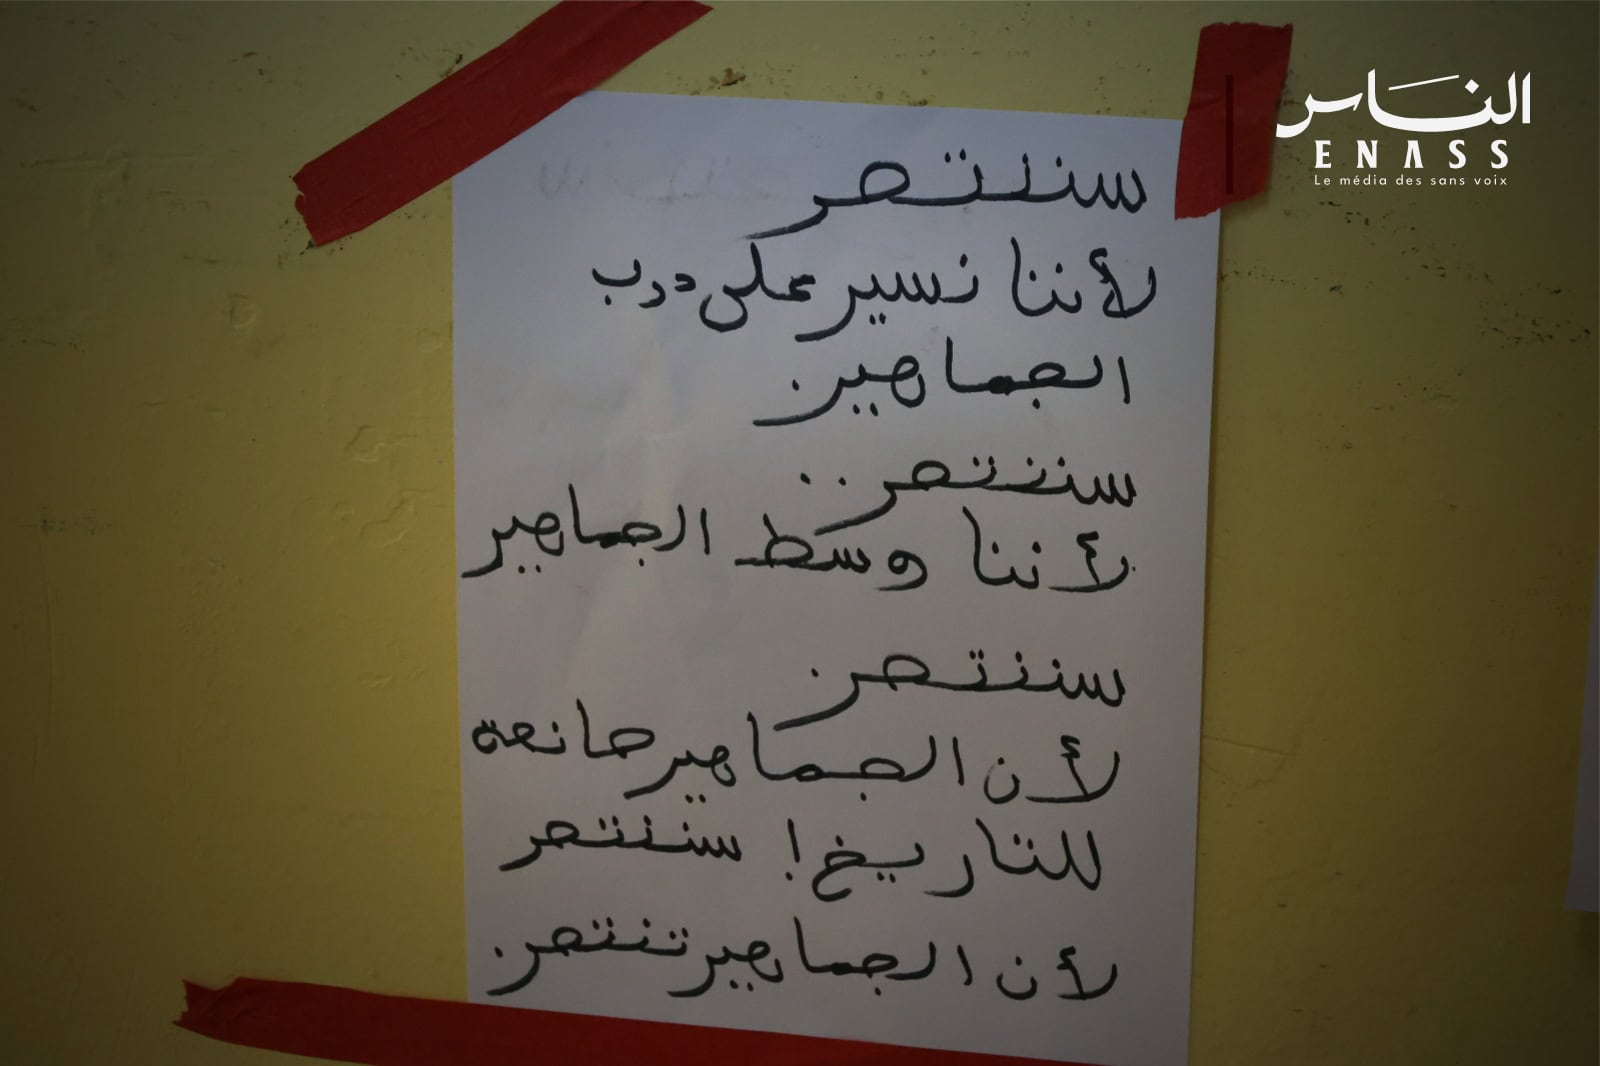 الناس
ENASS
Le média des sans voix
سننتصر
لأننا نسير على درب
الجماهير.
سننتصر..
لأننا وسط الجماهير
سننتصر.
لأن الجماهير صانعة
للتاريخ! سننتصر
لأن الجماهير تنتصر.